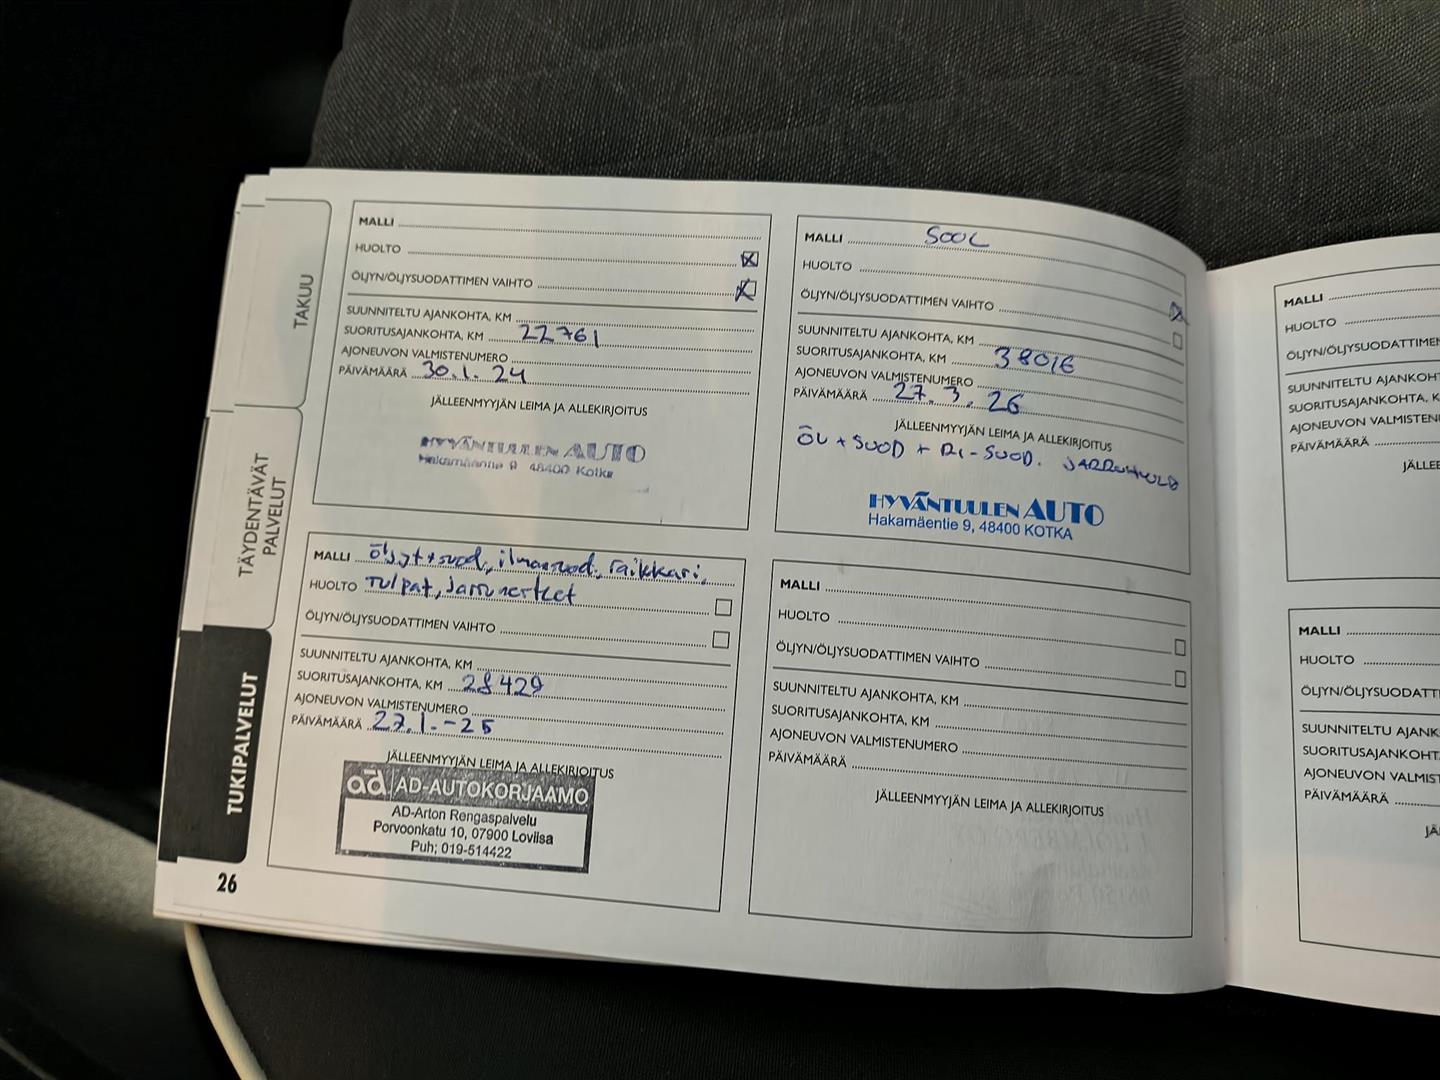 TAKUU
TÄYDENTÄVÄT
PALVELUT
TUKIPALVELUT
26
MALLI
HUOLTO
ÖLJYN/ÖLJYSUODATTIMEN VAIHTO
SUUNNITELTU AJANKOHTA, KM
SUORITUSAJANKOHTA, KM 22761
AJONEUVON VALMISTENUMERO
PÄIVÄMÄÄRÄ 30.1.24
JÄLLEENMYYJÄN LEIMA JA ALLEKIRJOITUS
HYVÄNTUULEN AUTO
Hakamäentie 9 48400 Kotka
MALLI 500L
HUOLTO
ÖLJYN/ÖLJYSUODATTIMEN VAIHTO
SUUNNITELTU AJANKOHTA, KM
SUORITUSAJANKOHTA, KM 38016
AJONEUVON VALMISTENUMERO
PÄIVÄMÄÄRÄ 27.3.26
JÄLLEENMYYJÄN LEIMA JA ALLEKIRJOITUS
ÖL + SUOD + RI-SUOD.
HYVÄNTUULEN AUTO
Hakamäentie 9, 48400 KOTKA
MALLI öljyt+suod., ilmansuod., raikkari,
HUOLTO Tulpat, Jarrunesteet
ÖLJYN/ÖLJYSUODATTIMEN VAIHTO
SUUNNITELTU AJANKOHTA, KM
SUORITUSAJANKOHTA, KM 28429
AJONEUVON VALMISTENUMERO
PÄIVÄMÄÄRÄ 27.1.-25
JÄLLEENMYYJÄN LEIMA JA ALLEKIRJOITUS
ad AD-AUTOKORJAAMO
AD-Arton Rengaspalvelu
Porvoonkatu 10, 07900 Loviisa
Puh; 019-514422
MALLI
HUOLTO
ÖLJYN/ÖLJYSUODATTIMEN VAIHTO
SUUNNITELTU AJANKOHTA, KM
SUORITUSAJANKOHTA, KM
AJONEUVON VALMISTENUMERO
PÄIVÄMÄÄRÄ
JÄLLEENMYYJÄN LEIMA JA ALLEKIRJOITUS
MALLI
HUOLTO
ÖLJYN/ÖLJYSUODATTIME
SUUNNITELTU AJANKOHT
SUORITUSAJANKOHTA, K
AJONEUVON VALMISTENU
PÄIVÄMÄÄRÄ
JÄLLEE
MALLI
HUOLTO
ÖLJYN/ÖLJYSUODATTI
SUUNNITELTU AJANK
SUORITUSAJANKOHT
AJONEUVON VALMIST
PÄIVÄMÄÄRÄ
JÄ